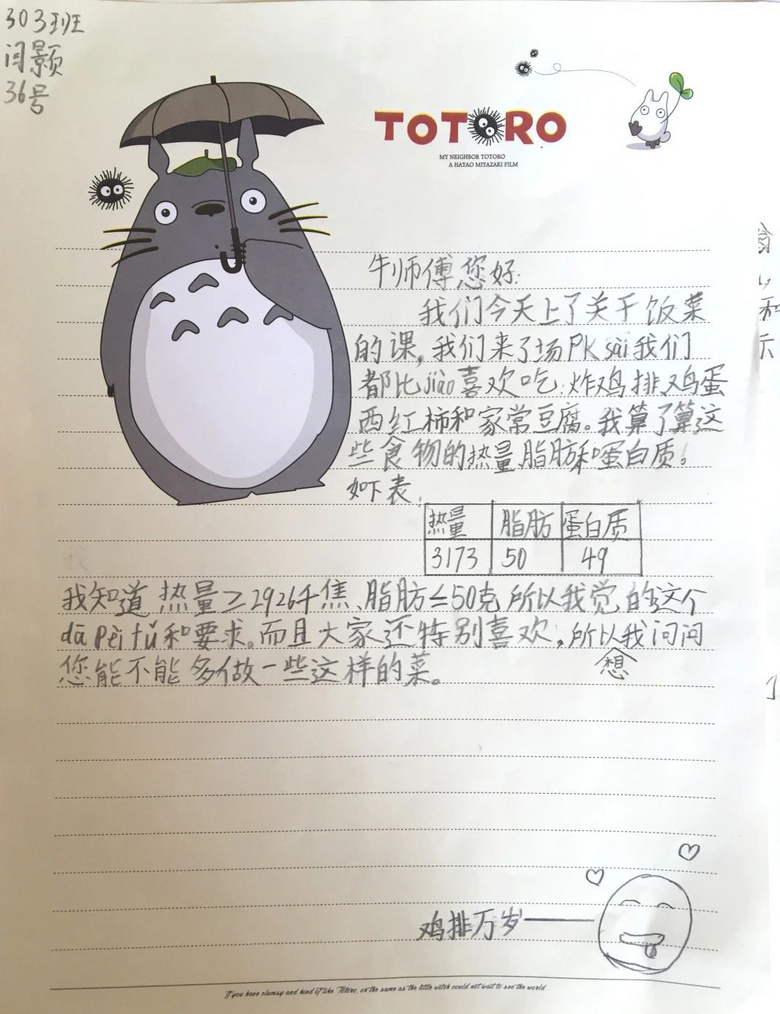 303班
闫景颢
36号
TOTORO
MY NEIGHBOR TOTORO
A HAYAO MIYAZAKI FILM
牛师傅您好:
我们今天上了关于饭菜
的课,我们来了场PK sài我们
都比jiào喜欢吃:炸鸡排、鸡蛋
西红柿和家常豆腐。我算了算这
些食物的热量、脂肪和蛋白质。
如下表
热量 脂肪 蛋白质
3173 50 49
我知道热量≥2926千焦、脂肪≤50克所以我觉的这个
dā Pèi fú和要求。而且大家还特别喜欢,所以我问问
想
您能不能多做一些这样的菜。
鸡排万岁
If you have clumsy and kind of like Totoro, or the same as the little witch could not wait to see the world